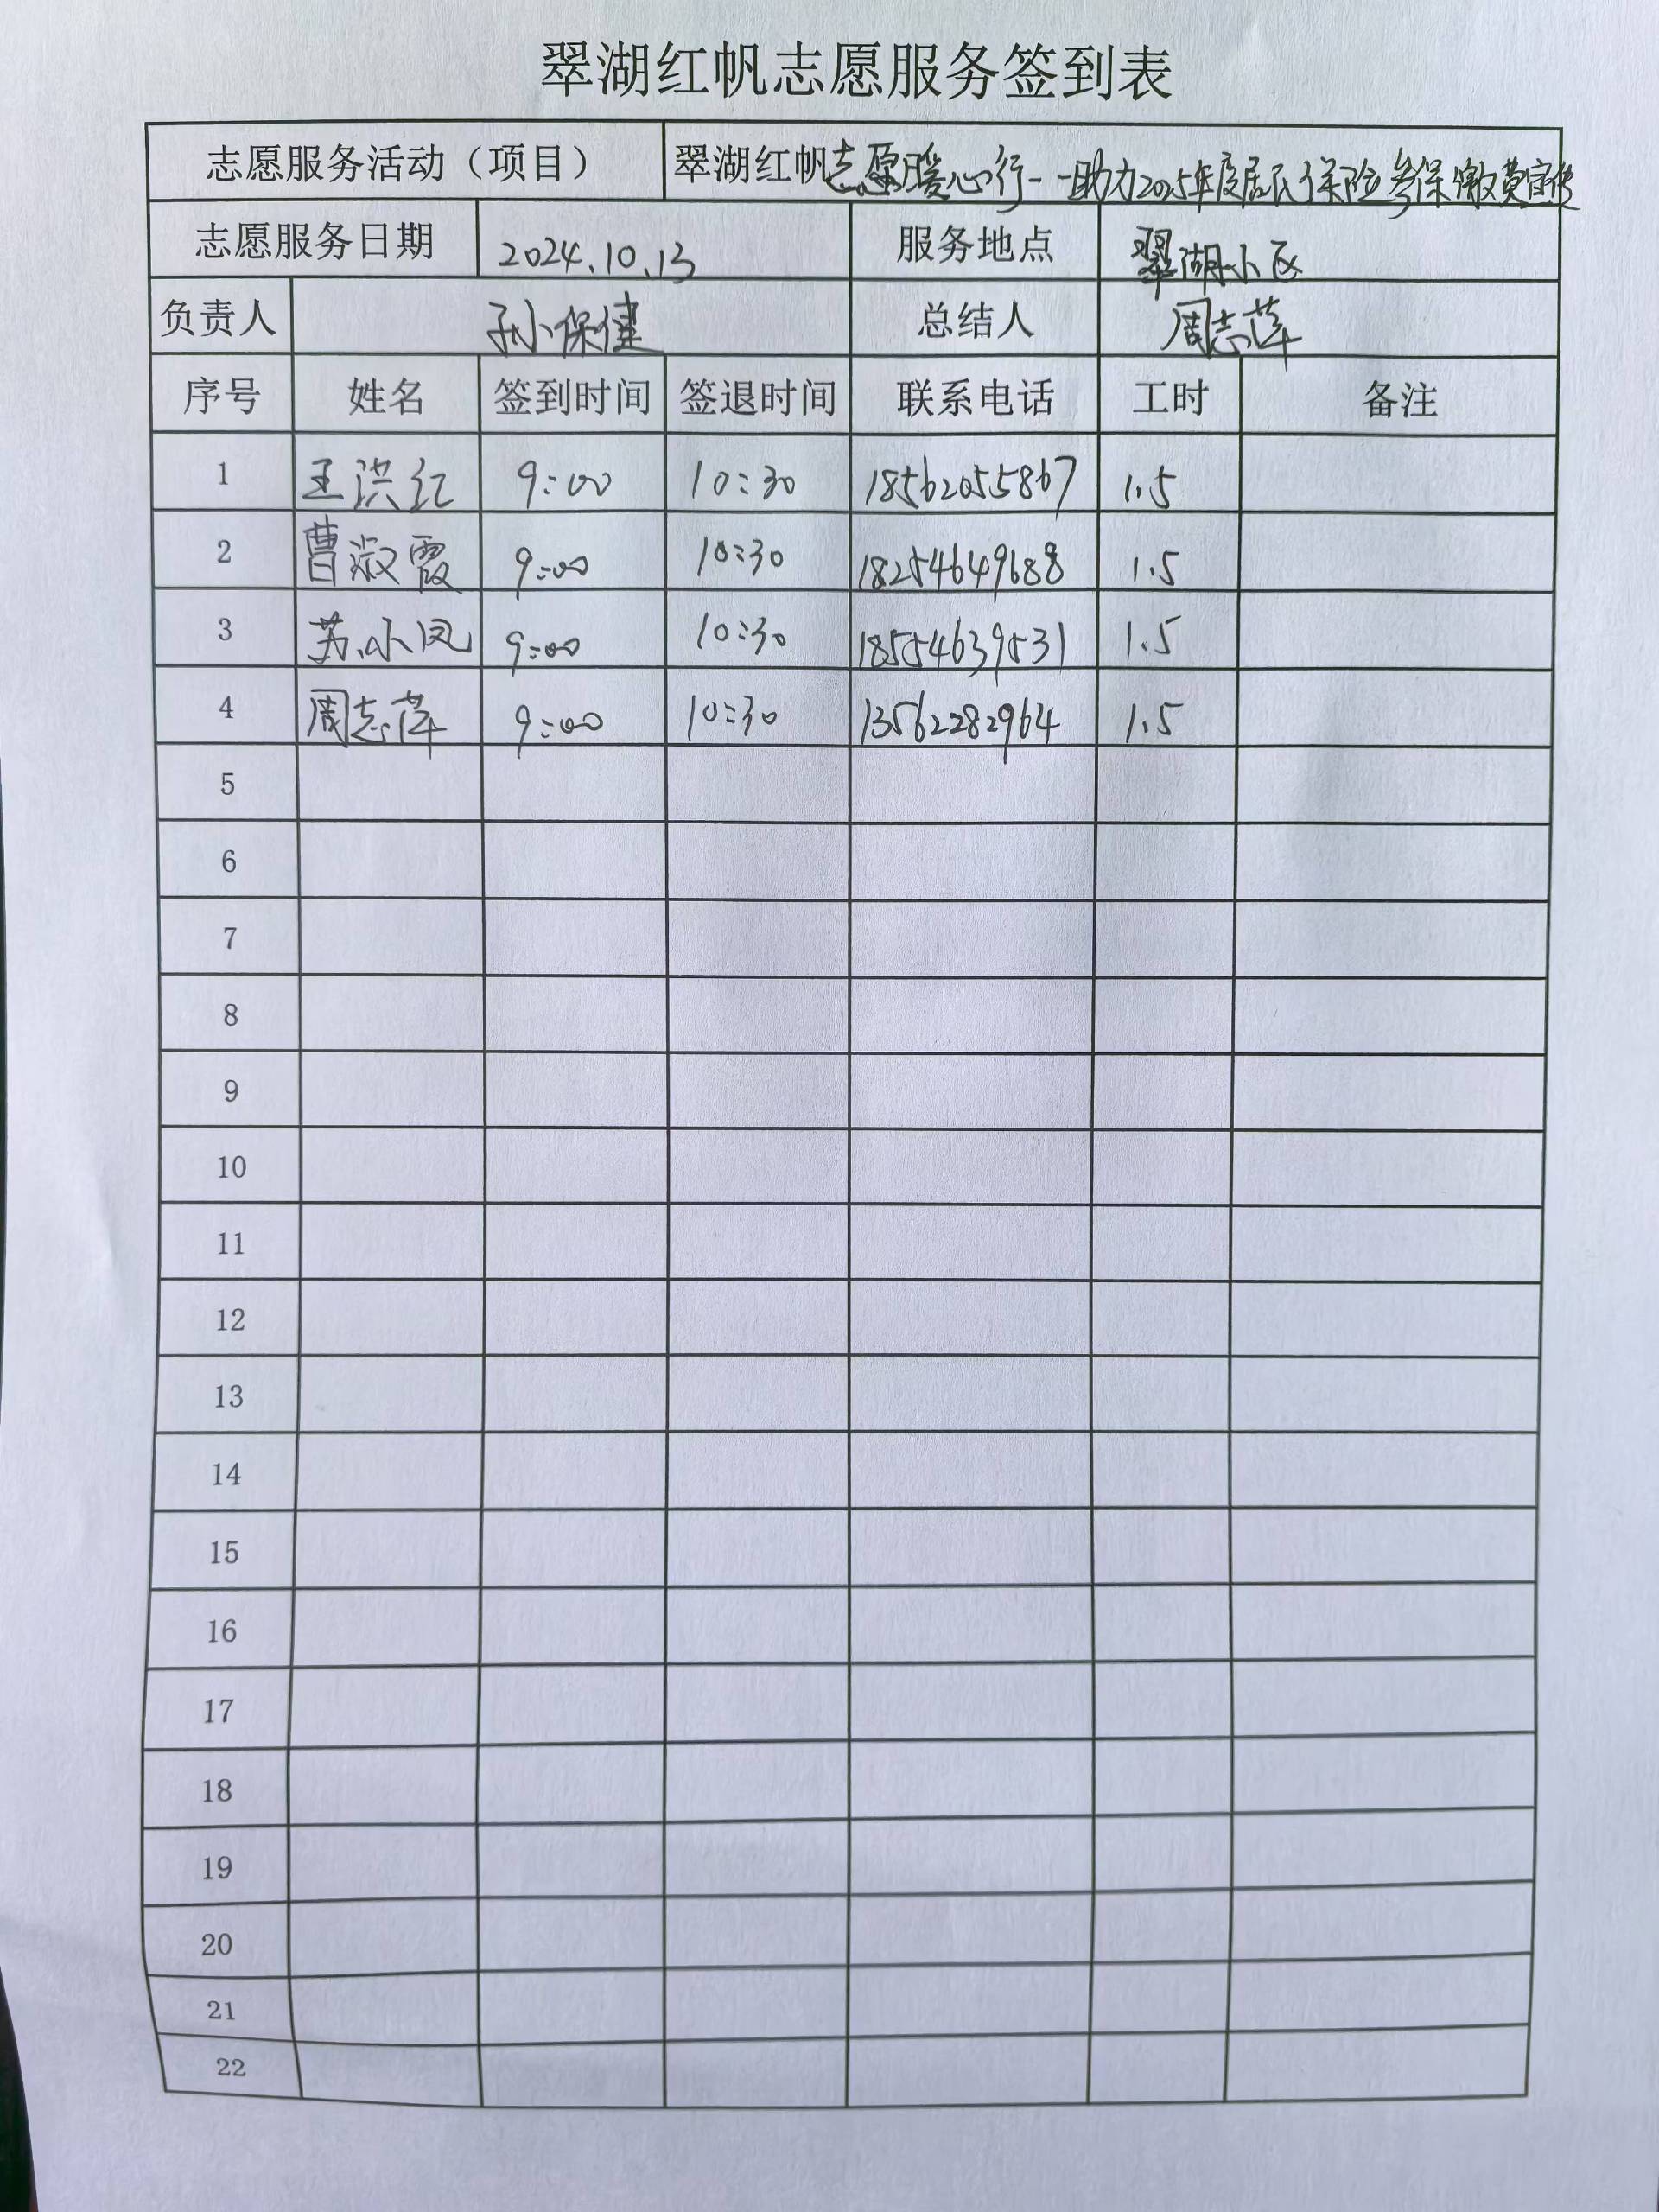 翠湖红帆志愿服务签到表
志愿服务活动（项目） 翠湖红帆志愿暖心行--助力2025年度居民保险参保缴费宣传
志愿服务日期 2024.10.13 服务地点 翠湖小区
负责人 孙保健 总结人 周志萍
序号 姓名 签到时间 签退时间 联系电话 工时 备注
1 王洪红 9:00 10:30 18562055867 1.5
2 曹淑霞 9:00 10:30 18254649688 1.5
3 苏小凤 9:00 10:30 18554639531 1.5
4 周志萍 9:00 10:30 13562282964 1.5
5
6
7
8
9
10
11
12
13
14
15
16
17
18
19
20
21
22